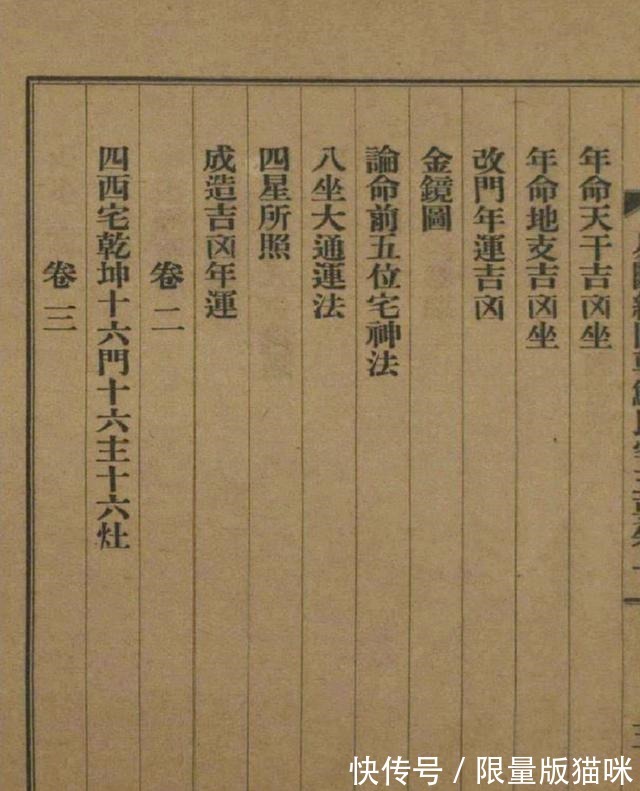 年命天干吉凶坐
年命地支吉凶坐
改門年運吉凶
金鏡圖
論命前五位宅神法
八坐大通運法
四星所照
成造吉凶年運
卷二
四西宅乾坤十六門十六主十六灶
卷三
快传号/限量版猫咪